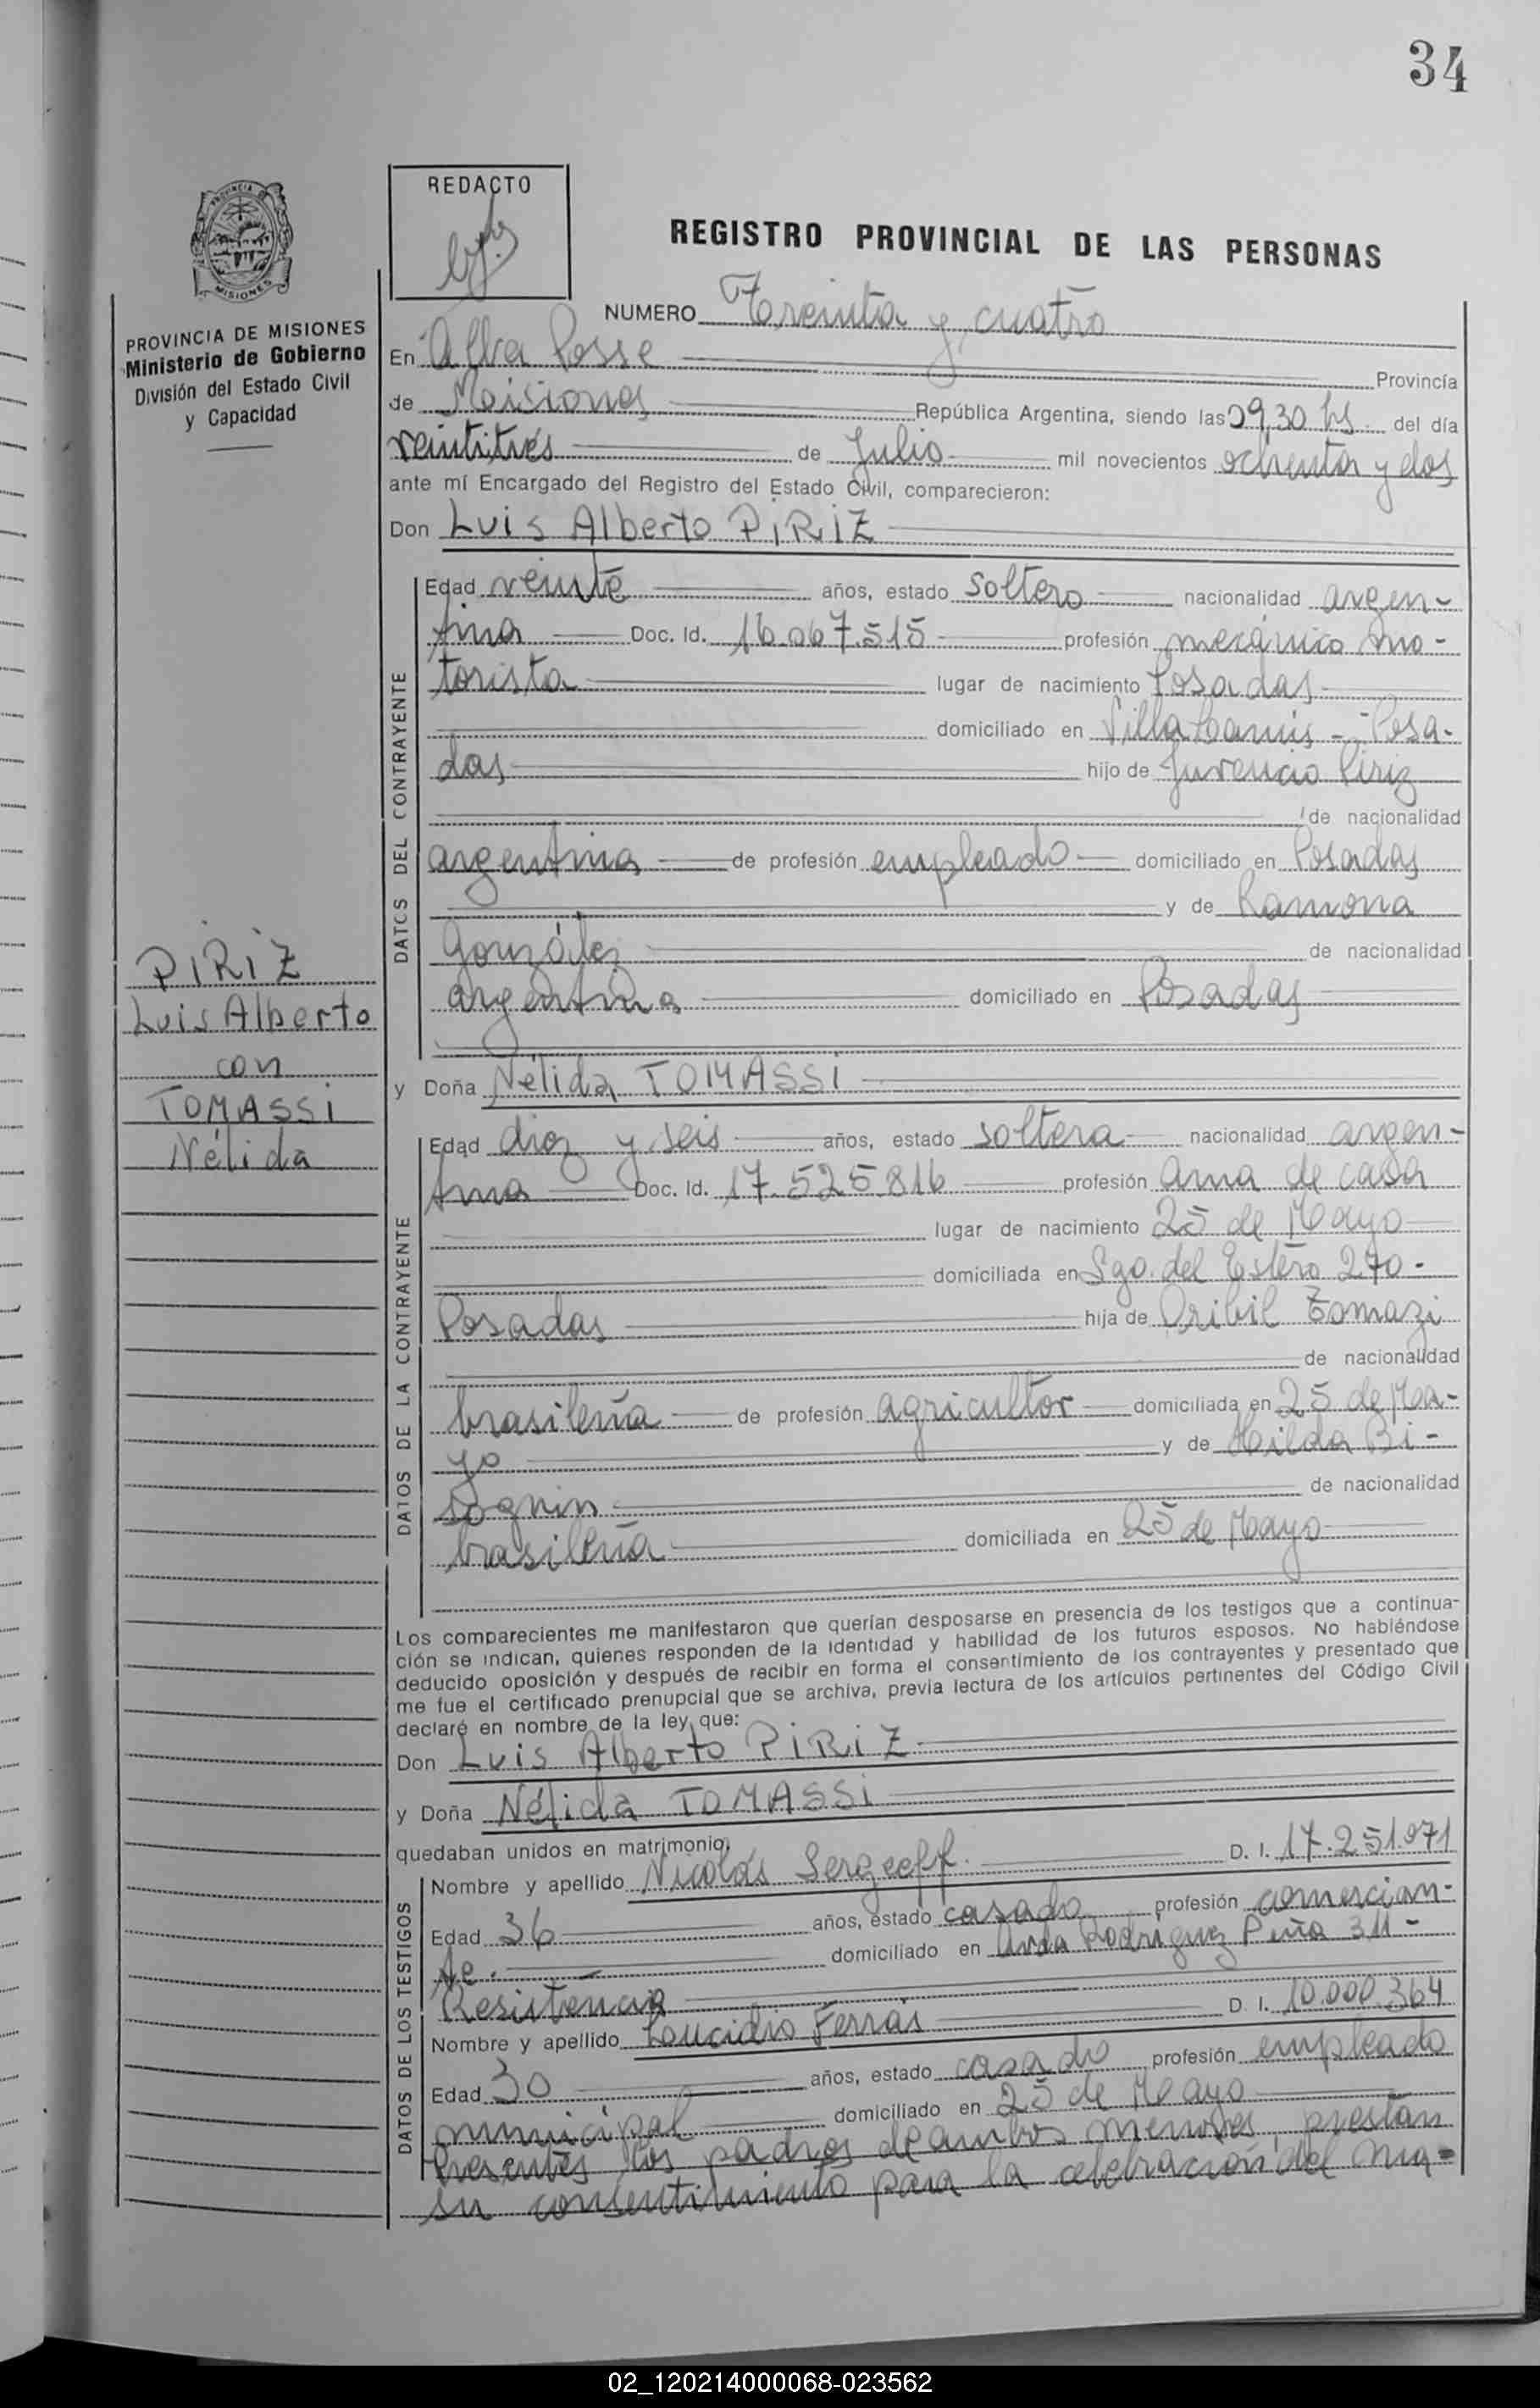 34
REDACTO
REGISTRO PROVINCIAL DE LAS PERSONAS
PROVINCIA DE MISIONES
Ministerio de Gobierno
División del Estado Civil
y Capacidad
NUMERO Treinta y cuatro
En Alba Posse Provincia
de Misiones República Argentina, siendo las 09,30 hs. del día
veintitrés de Julio mil novecientos ochenta y dos
ante mí Encargado del Registro del Estado Civil, comparecieron:
Don Luis Alberto PiRiZ
DATOS DEL CONTRAYENTE
Edad veinte años, estado soltero nacionalidad argen-
tina Doc. Id. 16.067.515 profesión mecánico mo-
torista lugar de nacimiento Posadas
domiciliado en Villa Lanús - Posa-
das hijo de Juvencio Piriz
de nacionalidad
argentina de profesión empleado domiciliado en Posadas
y de Ramona
González de nacionalidad
argentina domiciliado en Posadas
PiRiZ
Luis Alberto
con
TOMASSi
Nélida
y Doña Nélida TOMASSi
DATOS DE LA CONTRAYENTE
Edad diez y seis años, estado soltera nacionalidad argen-
tina Doc. Id. 17.525.816 profesión ama de casa
lugar de nacimiento 25 de Mayo
domiciliada en Sgo. del Estero 270 -
Posadas hija de Oribil Tomazi
de nacionalidad
brasileña de profesión agricultor domiciliada en 25 de Ma-
yo y de Hilda Bi-
sognin de nacionalidad
brasileña domiciliada en 25 de Mayo
Los comparecientes me manifestaron que querían desposarse en presencia de los testigos que a continua-
ción se indican, quienes responden de la identidad y habilidad de los futuros esposos. No habiéndose
deducido oposición y después de recibir en forma el consentimiento de los contrayentes y presentado que
me fue el certificado prenupcial que se archiva, previa lectura de los artículos pertinentes del Código Civil
declaré en nombre de la ley que:
Don Luis Alberto PiRiZ
y Doña Nélida TOMASSi
quedaban unidos en matrimonio.
DATOS DE LOS TESTIGOS
Nombre y apellido Nicolás Sergeeff. D. I. 17.251.971
Edad 36 años, estado casado profesión comercian-
te. domiciliado en Avda Rodríguez Peña 311 -
Resistencia
Nombre y apellido Loucidio Ferras D. I. 10.000.364
Edad 30 años, estado casado profesión empleado
municipal domiciliado en 25 de Mayo
Presentes los padres de ambos menores, prestan
su consentimiento para la celebración del ma=
02_120214000068-023562